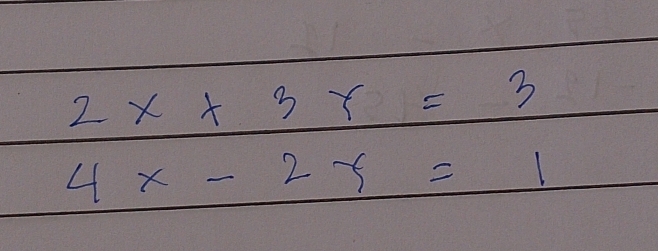 2x + 3y = 3
4x - 2y = 1